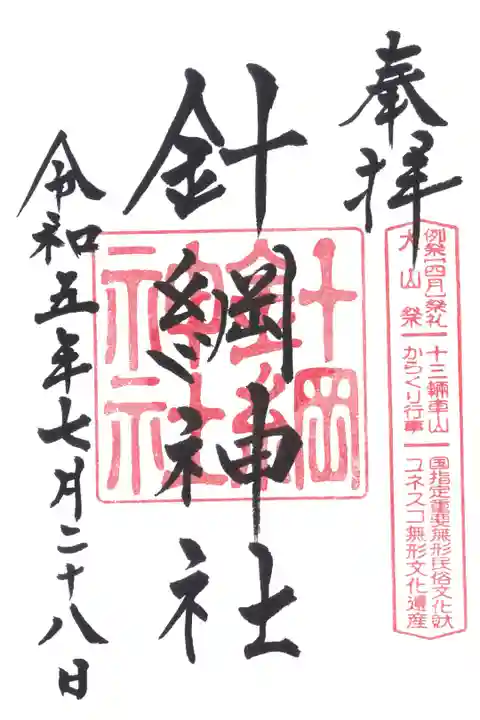 奉拝
例祭【四月】祭礼
犬山祭
十三輛車山
からくり行事
国指定重要無形民俗文化財
ユネスコ無形文化遺産
針綱神社
針綱神社
令和五年七月二十八日